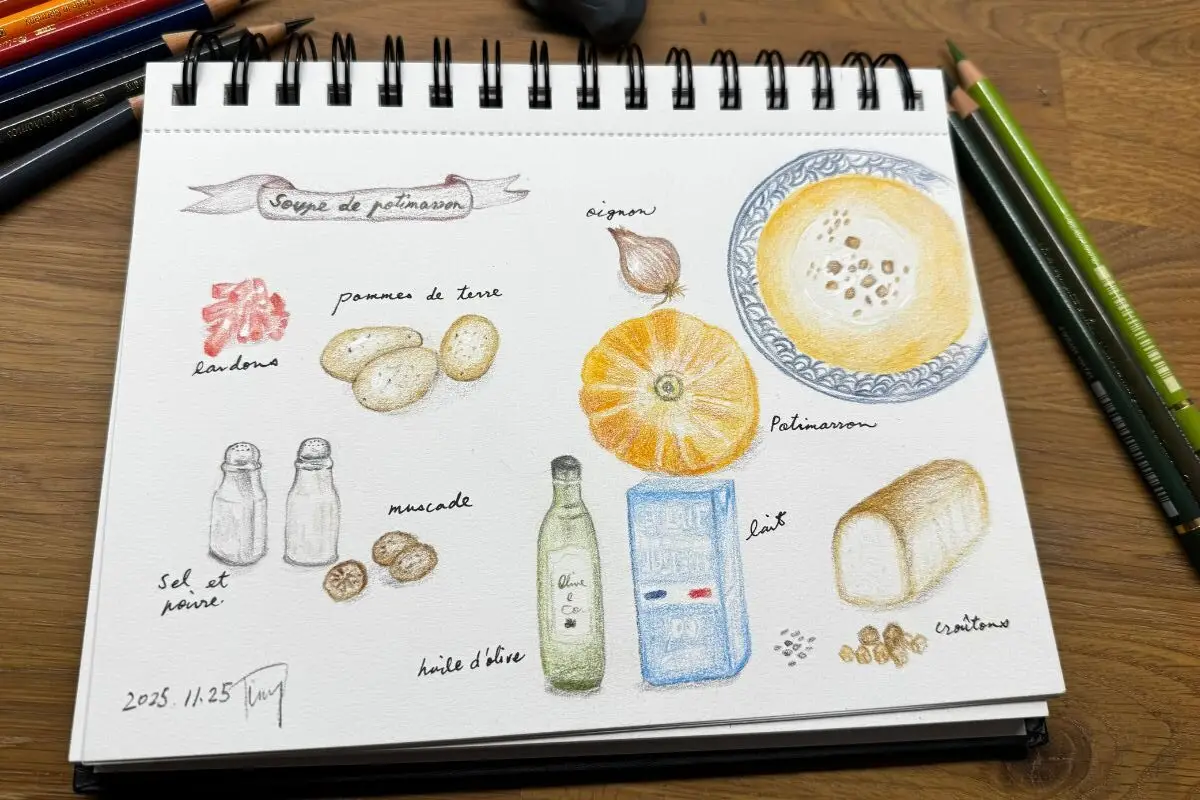 Soupe de potimarron
oignon
pommes de terre
lardons
Potimarron
muscade
lait
Sel et
poivre.
Olive
&
Co.
croûtons
huile d'olive
2025.11.25 Tiny